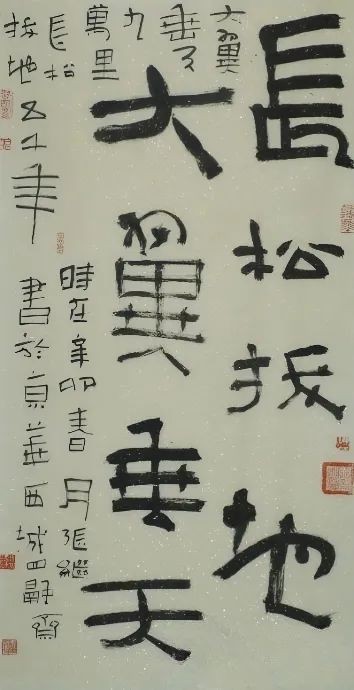 長松拔地
大翼垂天
大翼
垂天
九
萬里
長松
拔地五千年
時在辛卯春月張繼
書於京華西城四齋